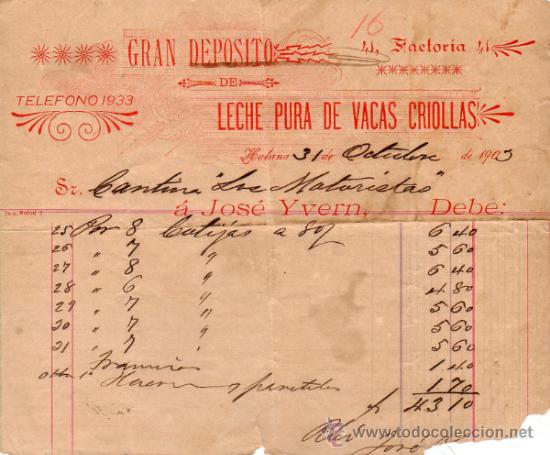 16
GRAN DEPOSITO 41, Factoría 41
DE
TELEFONO 1933
LECHE PURA DE VACAS CRIOLLAS
Habana 31 de Octubre de 1903
Sr. Cantina "Los Motoristas"
á José Yvern, Debe:
25 Por 8 Botijas a 80¢ 6 40
26 " 7 " 5 60
27 " 8 " 6 40
28 " 6 " 4 80
29 " 7 " 5 60
30 " 7 " 5 60
31 " 7 " 5 60
1 40
y panetelas 1 70
$ 43 10
José
www.todocoleccion.net